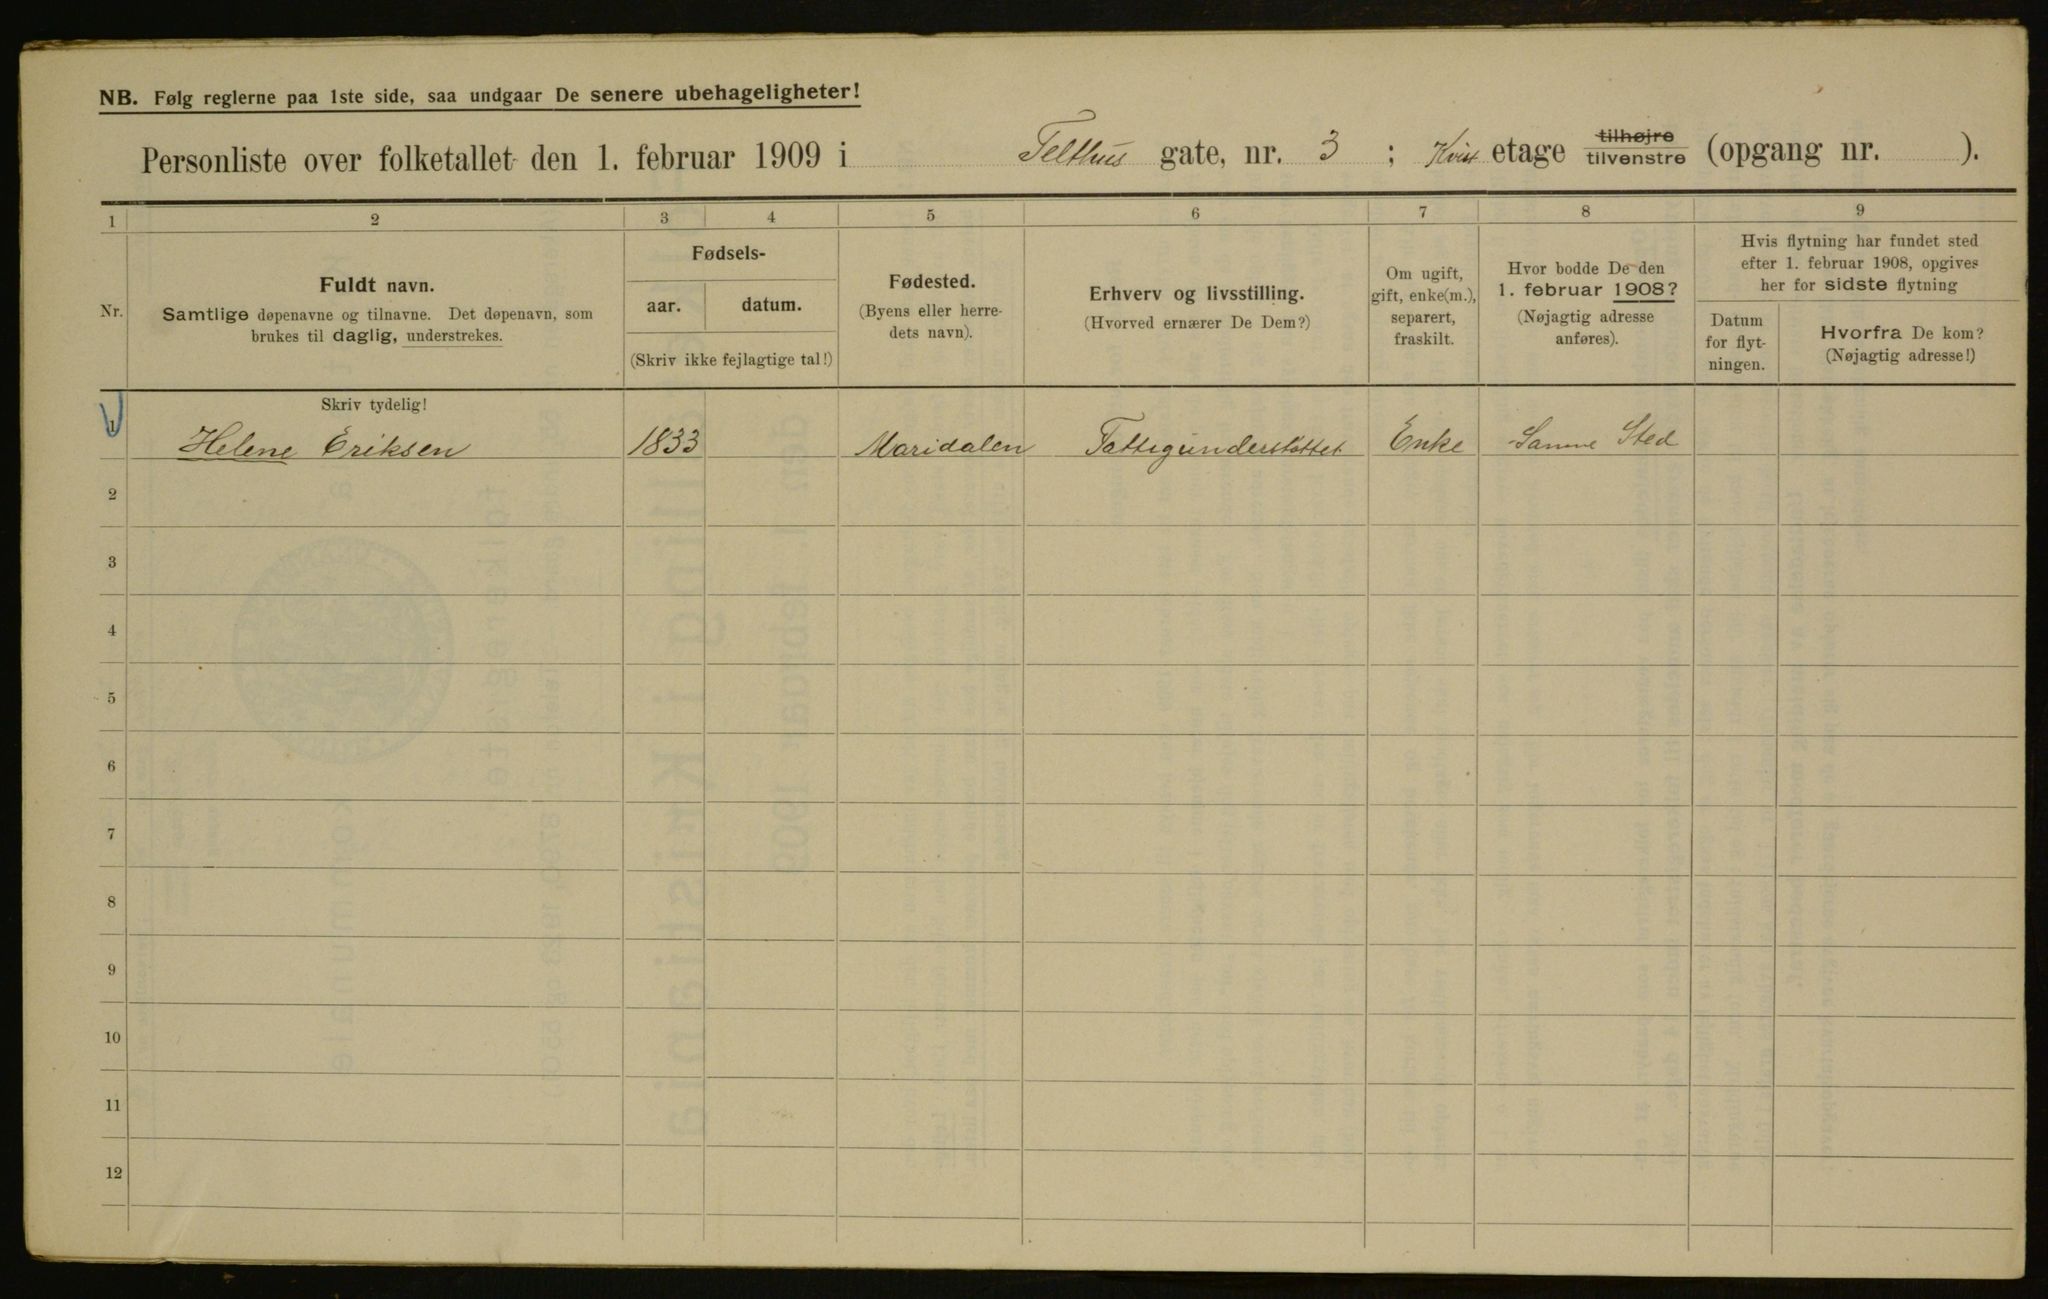 NB. Følg reglerne paa 1ste side, saa undgaar De senere ubehageligheter!
Personliste over folketallet den 1. februar 1909 i Telthus gate, nr. 3 ; Kvist etage tilhøjre tilvenstre (opgang nr. ).
1 2 3 4 5 6 7 8 9
Nr.
Fuldt navn.
Samtlige døpenavne og tilnavne. Det døpenavn, som
brukes til daglig, understrekes.
Fødsels-
aar. datum.
(Skriv ikke fejlagtige tal!)
Fødested.
(Byens eller herre-
dets navn).
Erhverv og livsstilling.
(Hvorved ernærer De Dem?)
Om ugift,
gift, enke(m.),
separert,
fraskilt.
Hvor bodde De den
1. februar 1908?
(Nøjagtig adresse
anføres).
Hvis flytning har fundet sted
efter 1. februar 1908, opgives
her for sidste flytning
Datum
for flyt-
ningen.
Hvorfra De kom?
(Nøjagtig adresse!)
Skriv tydelig!
1 Helene Eriksen 1833 Maridalen Fattigunderstøttet Enke Samme Sted
2
3
4
5
6
7
8
9
10
11
12